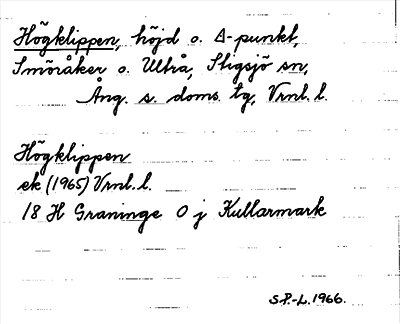 Högklippen, höjd o. Δ-punkt,
Smöråker o. Ultrå, Stigsjö sn,
Ång. s. doms. tg, Vrnl. l.
Högklippen
ek (1965) Vrnl. l.
18 H Graninge 0 j Kullarmark
S.P.-L. 1966.